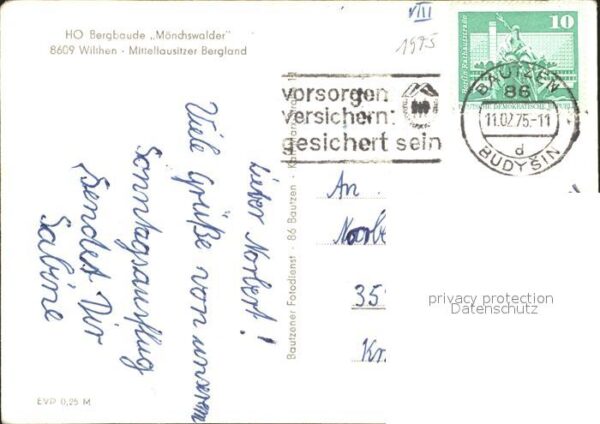 HO Bergbaude „Mönchswalder"
8609 Wilthen · Mittellausitzer Bergland
VIII
1975
10
BAUTZEN
86
11.02.75.-11
d
BUDYŠIN
vorsorgen
versichern:
gesichert sein
Lieber Norbert!
Viele Grüße von unserem
Sonntagsausflug
sendet Dir
Sabine
Bautzener Fotodienst · 86 Bautzen ·
An
35
Kr.
privacy protection
Datenschutz
EVP 0,25 M